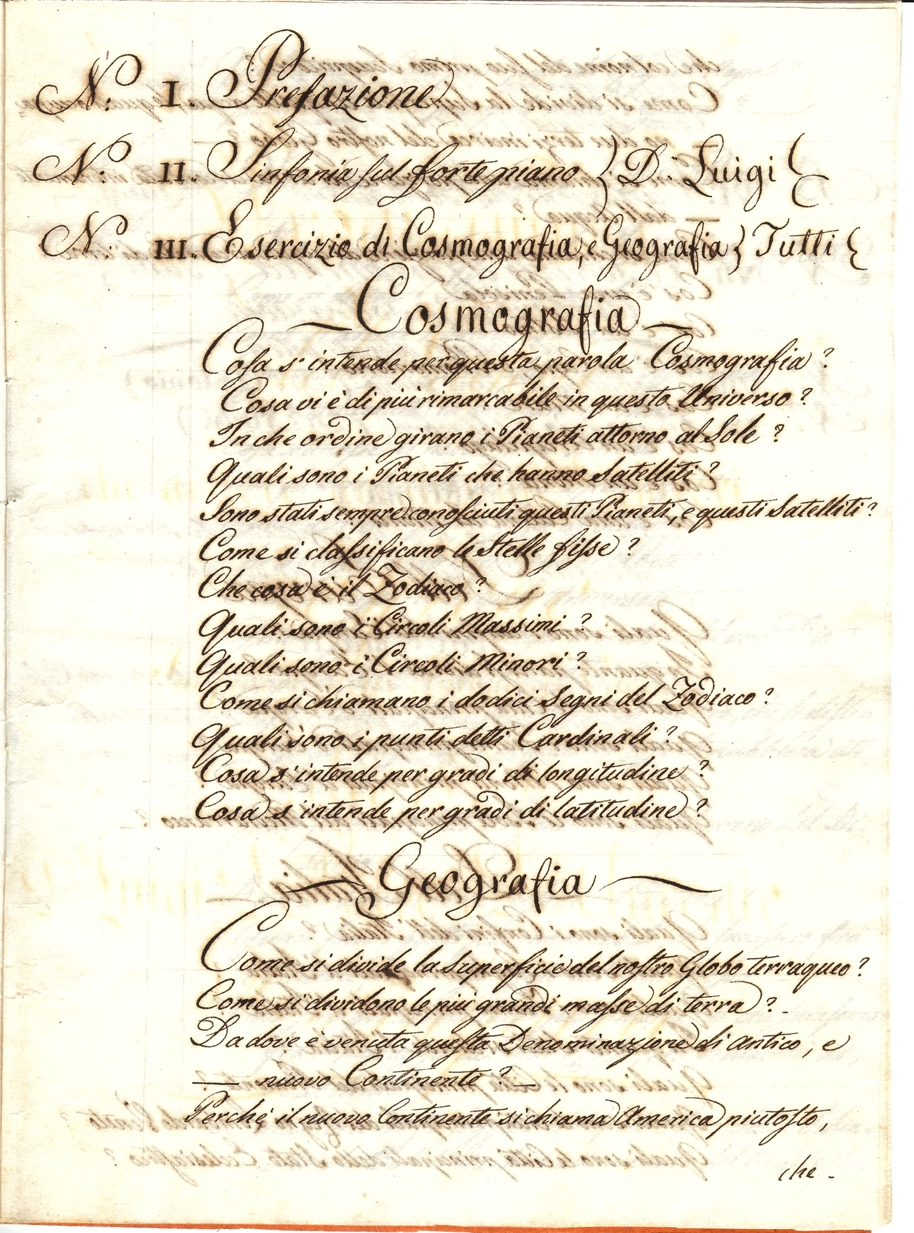 N.º I. Prefazione
N.º II. Sinfonia sul forte piano } D: Luigi {
N.º III. Esercizio di Cosmografia, e Geografia } Tutti {
— Cosmografia —
Cosa s'intende per questa parola Cosmografia?
Cosa vi è di più rimarcabile in questo Universo?
In che ordine girano i Pianeti attorno al Sole?
Quali sono i Pianeti che hanno Satelliti?
Sono stati sempre conosciuti questi Pianeti, e questi Satelliti?
Come si classificano le Stelle fisse?
Che cosa è il Zodiaco?
Quali sono i Circoli Massimi?
Quali sono i Circoli Minori?
Come si chiamano i dodici Segni del Zodiaco?
Quali sono i punti detti Cardinali?
Cosa s'intende per gradi di longitudine?
Cosa s'intende per gradi di latitudine?
— Geografia —
Come si divide la superficie del nostro Globo terraqueo?
Come si dividono le più grandi masse di terra? -
Da dove è venuta questa Denominazione di antico, e
— nuovo Continente? —
Perchè il nuovo Continente si chiama America piutosto,
che -